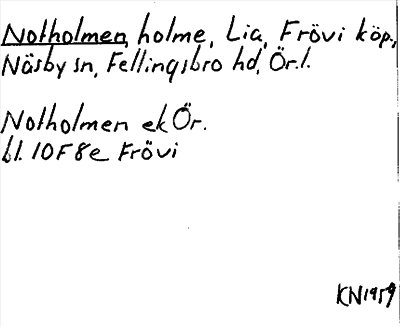 Notholmen, holme, Lia, Frövi köp.,
Näsby sn, Fellingsbro hd, Ör.l.
Notholmen ek Ör.
bl. 10F8e Frövi
KN1959